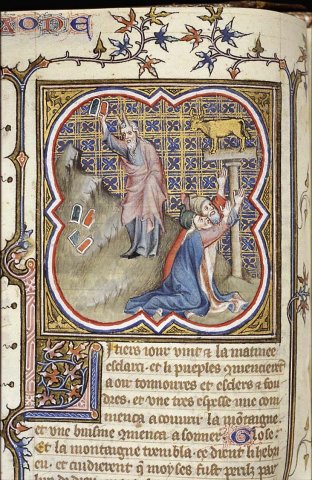 ODE
LI tiers iour vint & la matinee
esclarci. et li pueples qmencierent
a oir tonnoirres et esclers & fou
dres. et une tres espesse nue com
menca a couurir la mõtaigne.
et une busine qmenca a sonner. Glose.
Et la montaigne trembla. ce dient li hebri
eu. et cuidierent q moyses fust perilz par